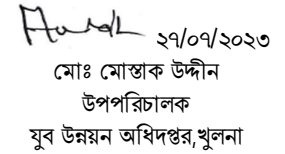 ২৭/০৭/২০২৩
মোঃ মোস্তাক উদ্দীন
উপপরিচালক
যুব উন্নয়ন অধিদপ্তর,খুলনা